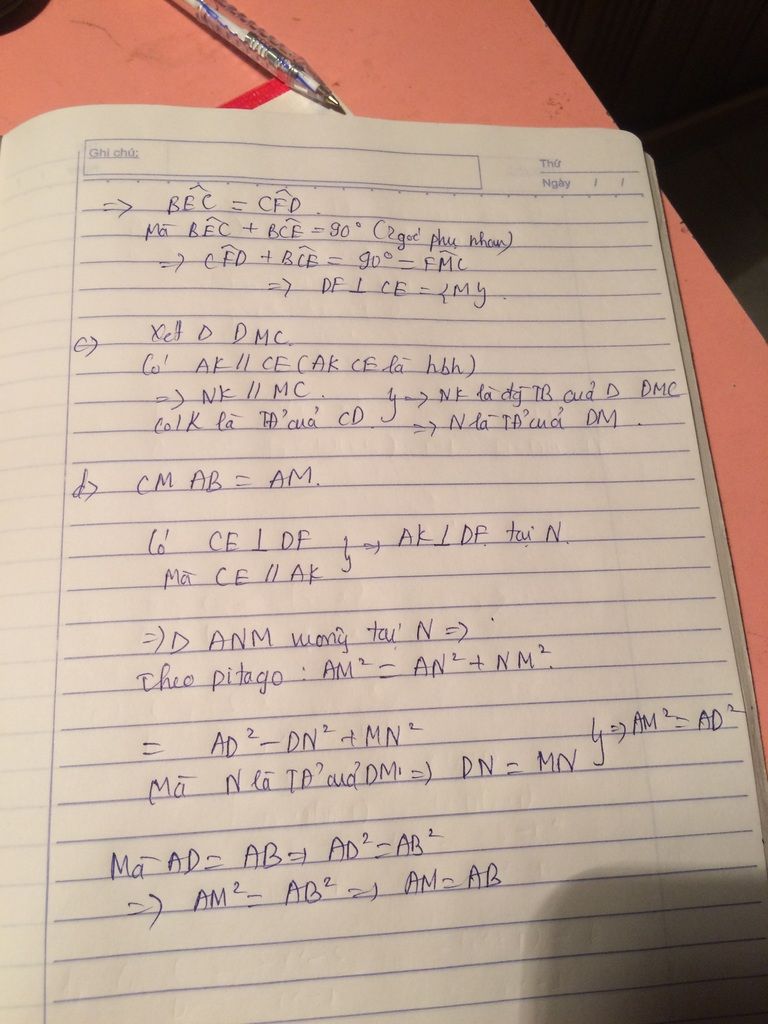 Ghi chú:
Thứ
Ngày / /
=> BÊC = CF̂D.
Mà BÊC + BĈE = 90° (2 góc phụ nhau)
=> CF̂D + BĈE = 90° = FM̂C
=> DF ⊥ CE = {M}.
c) Xét Δ DMC.
Có AK // CE (AK CE là hbh)
=> NK // MC. } => NK là đg TB của Δ DMC
Có K là TĐ của CD. => N là TĐ của DM.
d) CM AB = AM.
Có CE ⊥ DF } => AK ⊥ DF tại N.
Mà CE // AK
=> Δ ANM vuông tại N =>
Theo pitago: AM² = AN² + NM².
= AD² - DN² + MN² } => AM² = AD²
Mà N là TĐ của DM => DN = MN
Mà AD = AB => AD² = AB²
=> AM² = AB² => AM = AB